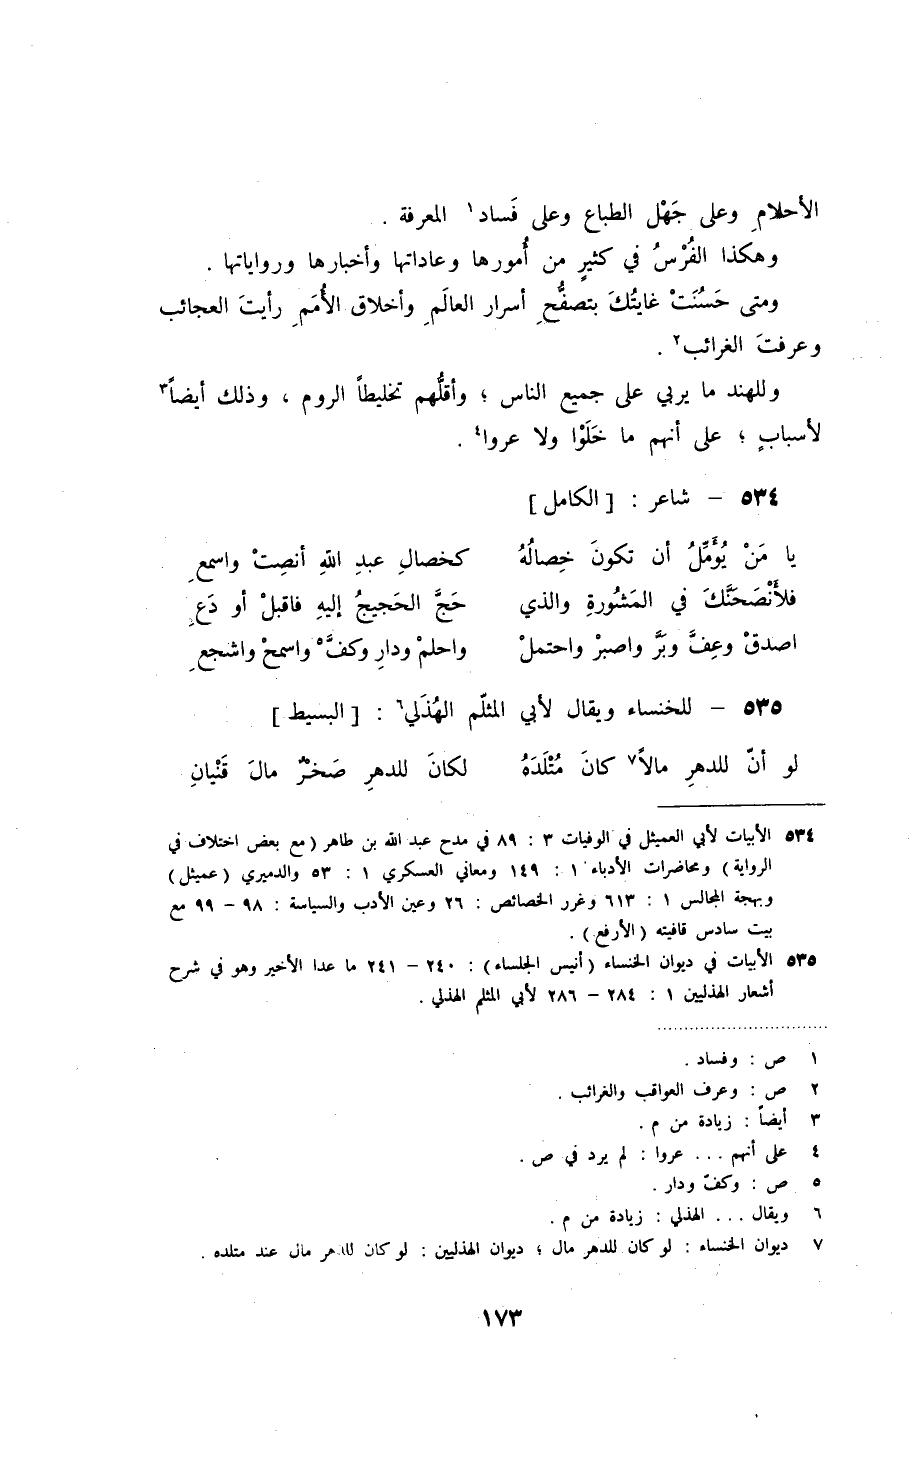 الأحلامِ وعلى جَهْل الطباع وعلى فَساد١ المعرفة .
وهكذا الفُرْسُ في كثيرٍ من أُمورها وعاداتها وأخبارها ورواياتها .
ومتى حَسُنَتْ غايتُكَ بتصفُّحِ أسرار العالَمِ وأخلاق الأُمَمِ رأيتَ العجائب
وعرفتَ الغرائب٢ .
وللهند ما يربي على جميع الناس ؛ وأقلُّهم تخليطاً الروم ، وذلك أيضاً٣
لأسبابٍ ؛ على أنهم ما خَلَوْا ولا عروا٤ .
٥٣٤ – شاعر : [ الكامل ]
يا مَنْ يُؤَمِّلُ أن تكونَ خِصالُهُ كخصالِ عبدِ اللهِ أنصِتْ واسمعِ
فلأَنْصَحَنَّكَ في المَشُورةِ والذي حَجَّ الحَجيجُ إليهِ فاقبلْ أو دَعِ
اصدقْ وعِفَّ وبَرَّ واصبرْ واحتملْ واحلمْ ودارِ وكفَّ٥ واسمحْ واشجعِ
٥٣٥ – للخنساء ويقال لأبي المثلّم الهُذَلي٦ : [ البسيط ]
لو أنّ للدهرِ مالاً٧ كانَ مُتْلَدَهُ لكانَ للدهرِ صَخرٌ مالَ قَنْيانِ
٥٣٤ الأبيات لأبي العميثل في الوفيات ٣ : ٨٩ في مدح عبد الله بن طاهر ( مع بعض اختلاف في
الرواية ) ومحاضرات الأدباء ١ : ١٤٩ ومعاني العسكري ١ : ٥٣ والدميري ( عميثل )
وبهجة المجالس ١ : ٦١٣ وغرر الخصائص : ٢٦ وعين الأدب والسياسة : ٩٨ – ٩٩ مع
بيت سادس قافيته ( الأرفع ) .
٥٣٥ الأبيات في ديوان الخنساء ( أنيس الجلساء ) : ٢٤٠ – ٢٤١ ما عدا الأخير وهو في شرح
أشعار الهذليين ١ : ٢٨٤ – ٢٨٦ لأبي المثلم الهذلي .
١ ص : وفساد .
٢ ص : وعرف العواقب والغرائب .
٣ أيضاً : زيادة من م .
٤ على أنهم ... عروا : لم يرد في ص .
٥ ص : وكفّ ودار .
٦ ويقال ... الهذلي : زيادة من م .
٧ ديوان الخنساء : لو كان للدهر مال ؛ ديوان الهذليين : لو كان للدهر مال عند متلده .
١٧٣